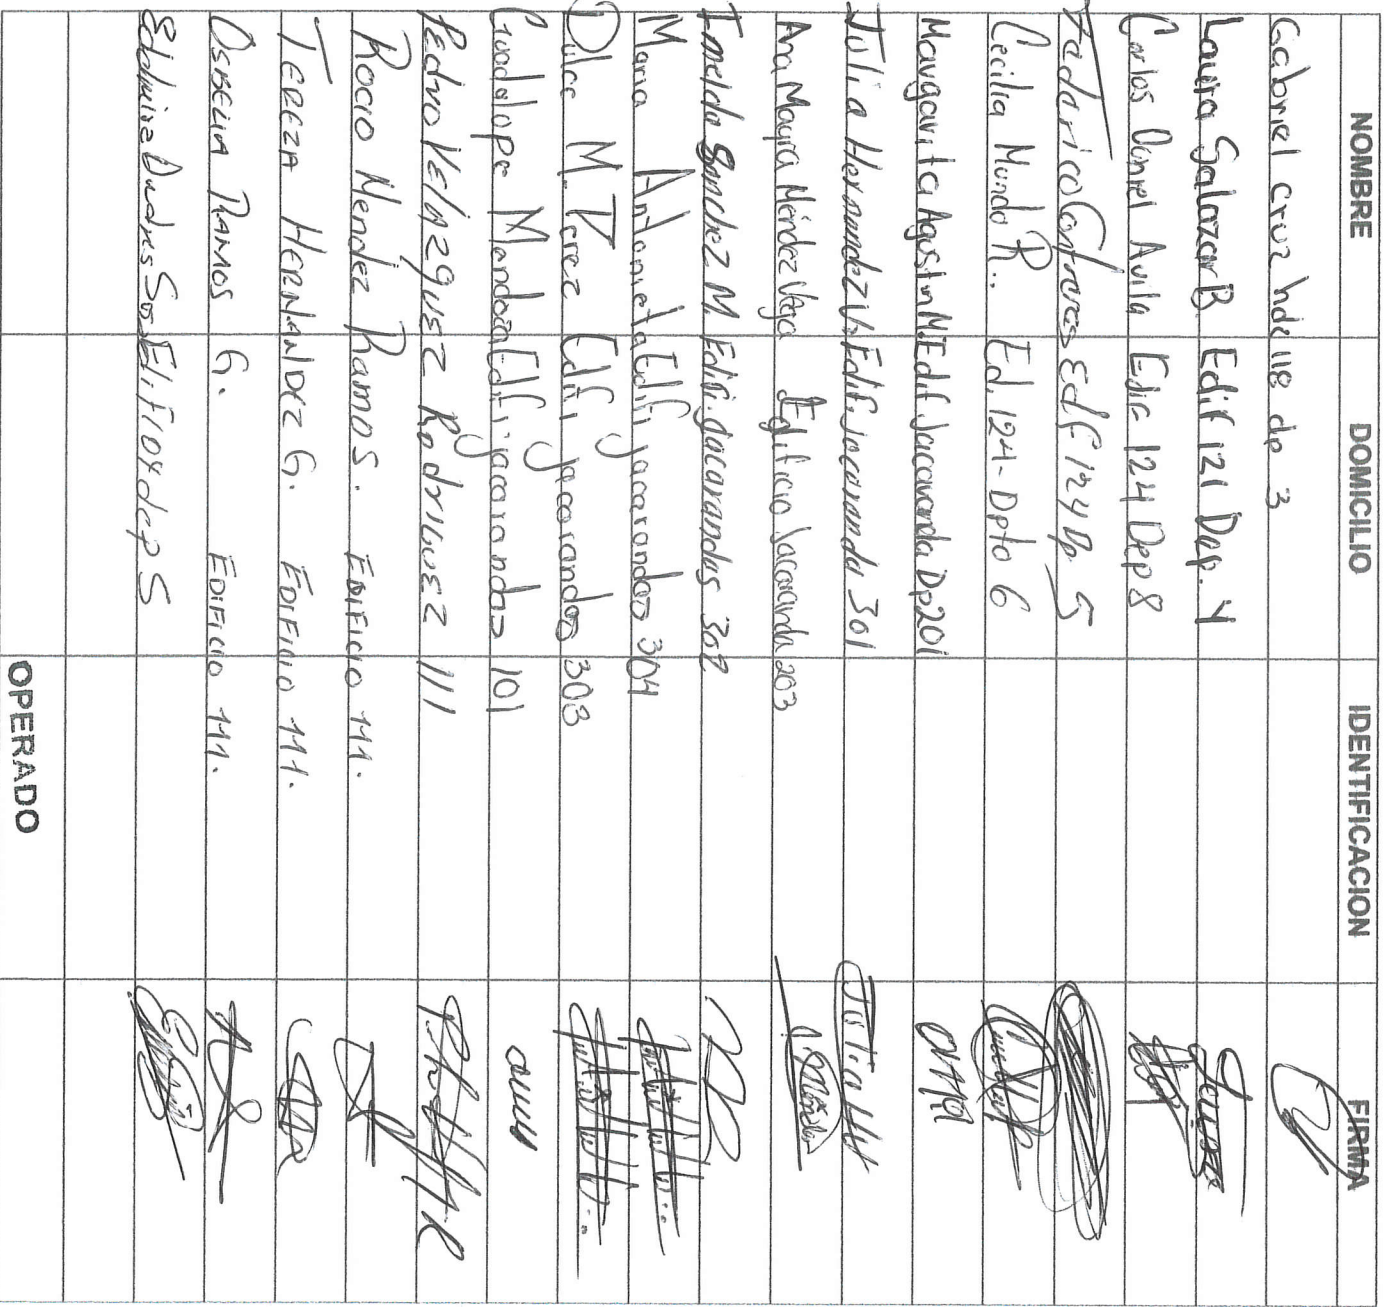 NOMBRE DOMICILIO IDENTIFICACION FIRMA
Gabriel Cruz hdz 118 dp 3
Laura Salazar B Edif 121 Dep. 4
Carlos Daniel Avila Edif 124 Dep 8
Federico Contreras Edf 124 Dp 5
Cecilia Mundo R. Ed. 124- Dpto 6
Margarita Agustin M. Edif Jacaranda Dp201
Julia Hernandez V. Edif. jacaranda 301
Ana Mayra Méndez Vega Edificio Jacaranda 203
Imelda Sanchez M Edifi. Jacarandas 302
Maria Antonieta Edifi jacarandas 304
Dulce M. Perez Edifi jacarandas 303
Guadalupe Mendoza Edifi jacarandas 101
Pedro VElAzquEz RodriguEz 111
Rocio Mendez Ramos. EDIFICIO 111.
TEREZA HERNANDEZ G. EDIFICIO 111.
OSBELIA RAMOS G. EDIFICIO 111.
Edif 108 dep 5
OPERADO